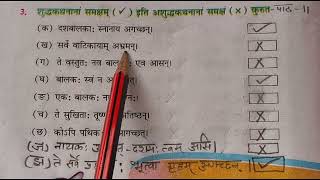 3. शुद्धकथनानां समक्षम् (✓) इति अशुद्धकथनानां समक्षं (×) कुरुत- पाठ-11
(क) दशबालकाः स्नानाय अगच्छन्। ✓
(ख) सर्वे वाटिकायाम् अभ्रमन्। ×
(ग) ते वस्तुतः नव बालकाः एव आसन्। ×
(घ) बालकः स्वं न ✓
(ङ) एकः बालकः ×
(च) ते सुखिताः तूष्णीम् अतिष्ठन्। ×
(छ) कोऽपि पथिकः न आगच्छत्। ×
(ज) नायकः दशमः त्वम् असि
(झ) ते सर्वे श्रुत्वा गृहम् ✓